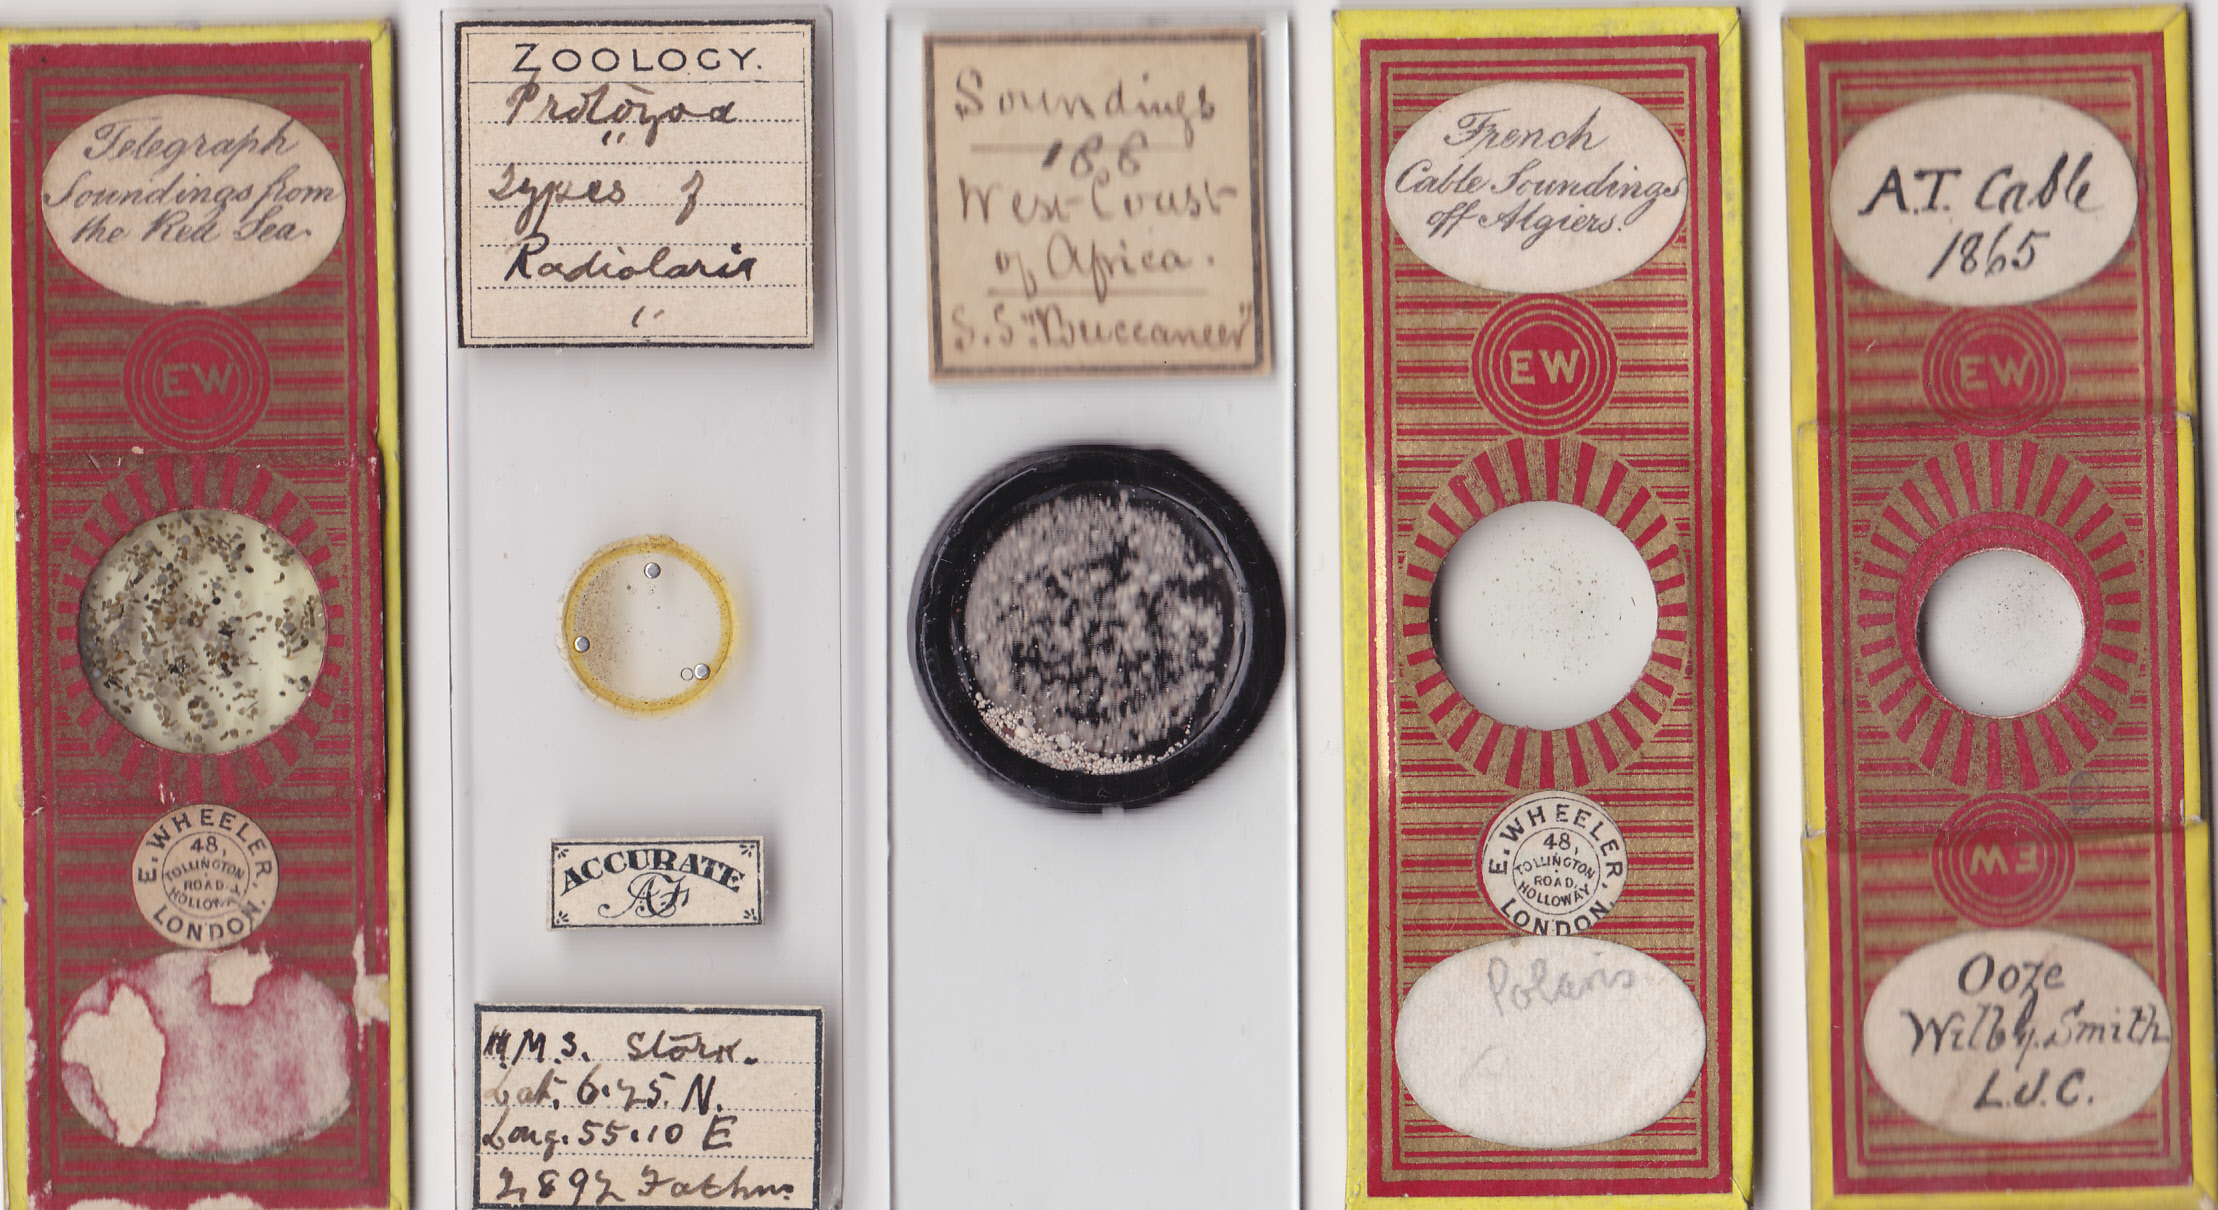 Telegraph
Soundings from
the Red Sea.
EW
E. WHEELER,
48,
TOLLINGTON
ROAD,
HOLLOWAY
LONDON.
ZOOLOGY.
Protozoa
"
Types of
Radiolaria
"
ACCURATE
AF
H.M.S. Stork.
Lat. 6.25. N.
Long. 55.10 E
2,892 Fathms
Soundings
188
West Coast
of Africa.
S.S. "Buccaneer"
French
Cable Soundings
off Algiers.
EW
E. WHEELER,
48,
TOLLINGTON
ROAD,
HOLLOWAY
LONDON.
Polaris
A.T. Cable
1865
EW
EW
Ooze
Wilby. Smith